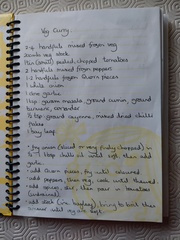 Veg Curry.
2-4 handfuls mixed frozen veg
veg stock
1 tin (small) peeled, chopped tomatoes
2 handfuls mixed frozen peppers
1-2 handfuls frozen Quorn pieces
1 white onion
1 clove garlic
1 tsp garam masala, ground cumin, ground
turmeric, coriander
½ tsp ground cayenne, mixed dried chilli
flakes
1 bay leaf
- Fry onion (sliced or very finely chopped) in
chilli oil until soft, then add
garlic.
- add Quorn pieces, fry until coloured
- add peppers, then veg, cook until thawed
- add spices, stir, then pour in tomatoes
- add stock (inc. bay leaf), bring to boil then
simmer until